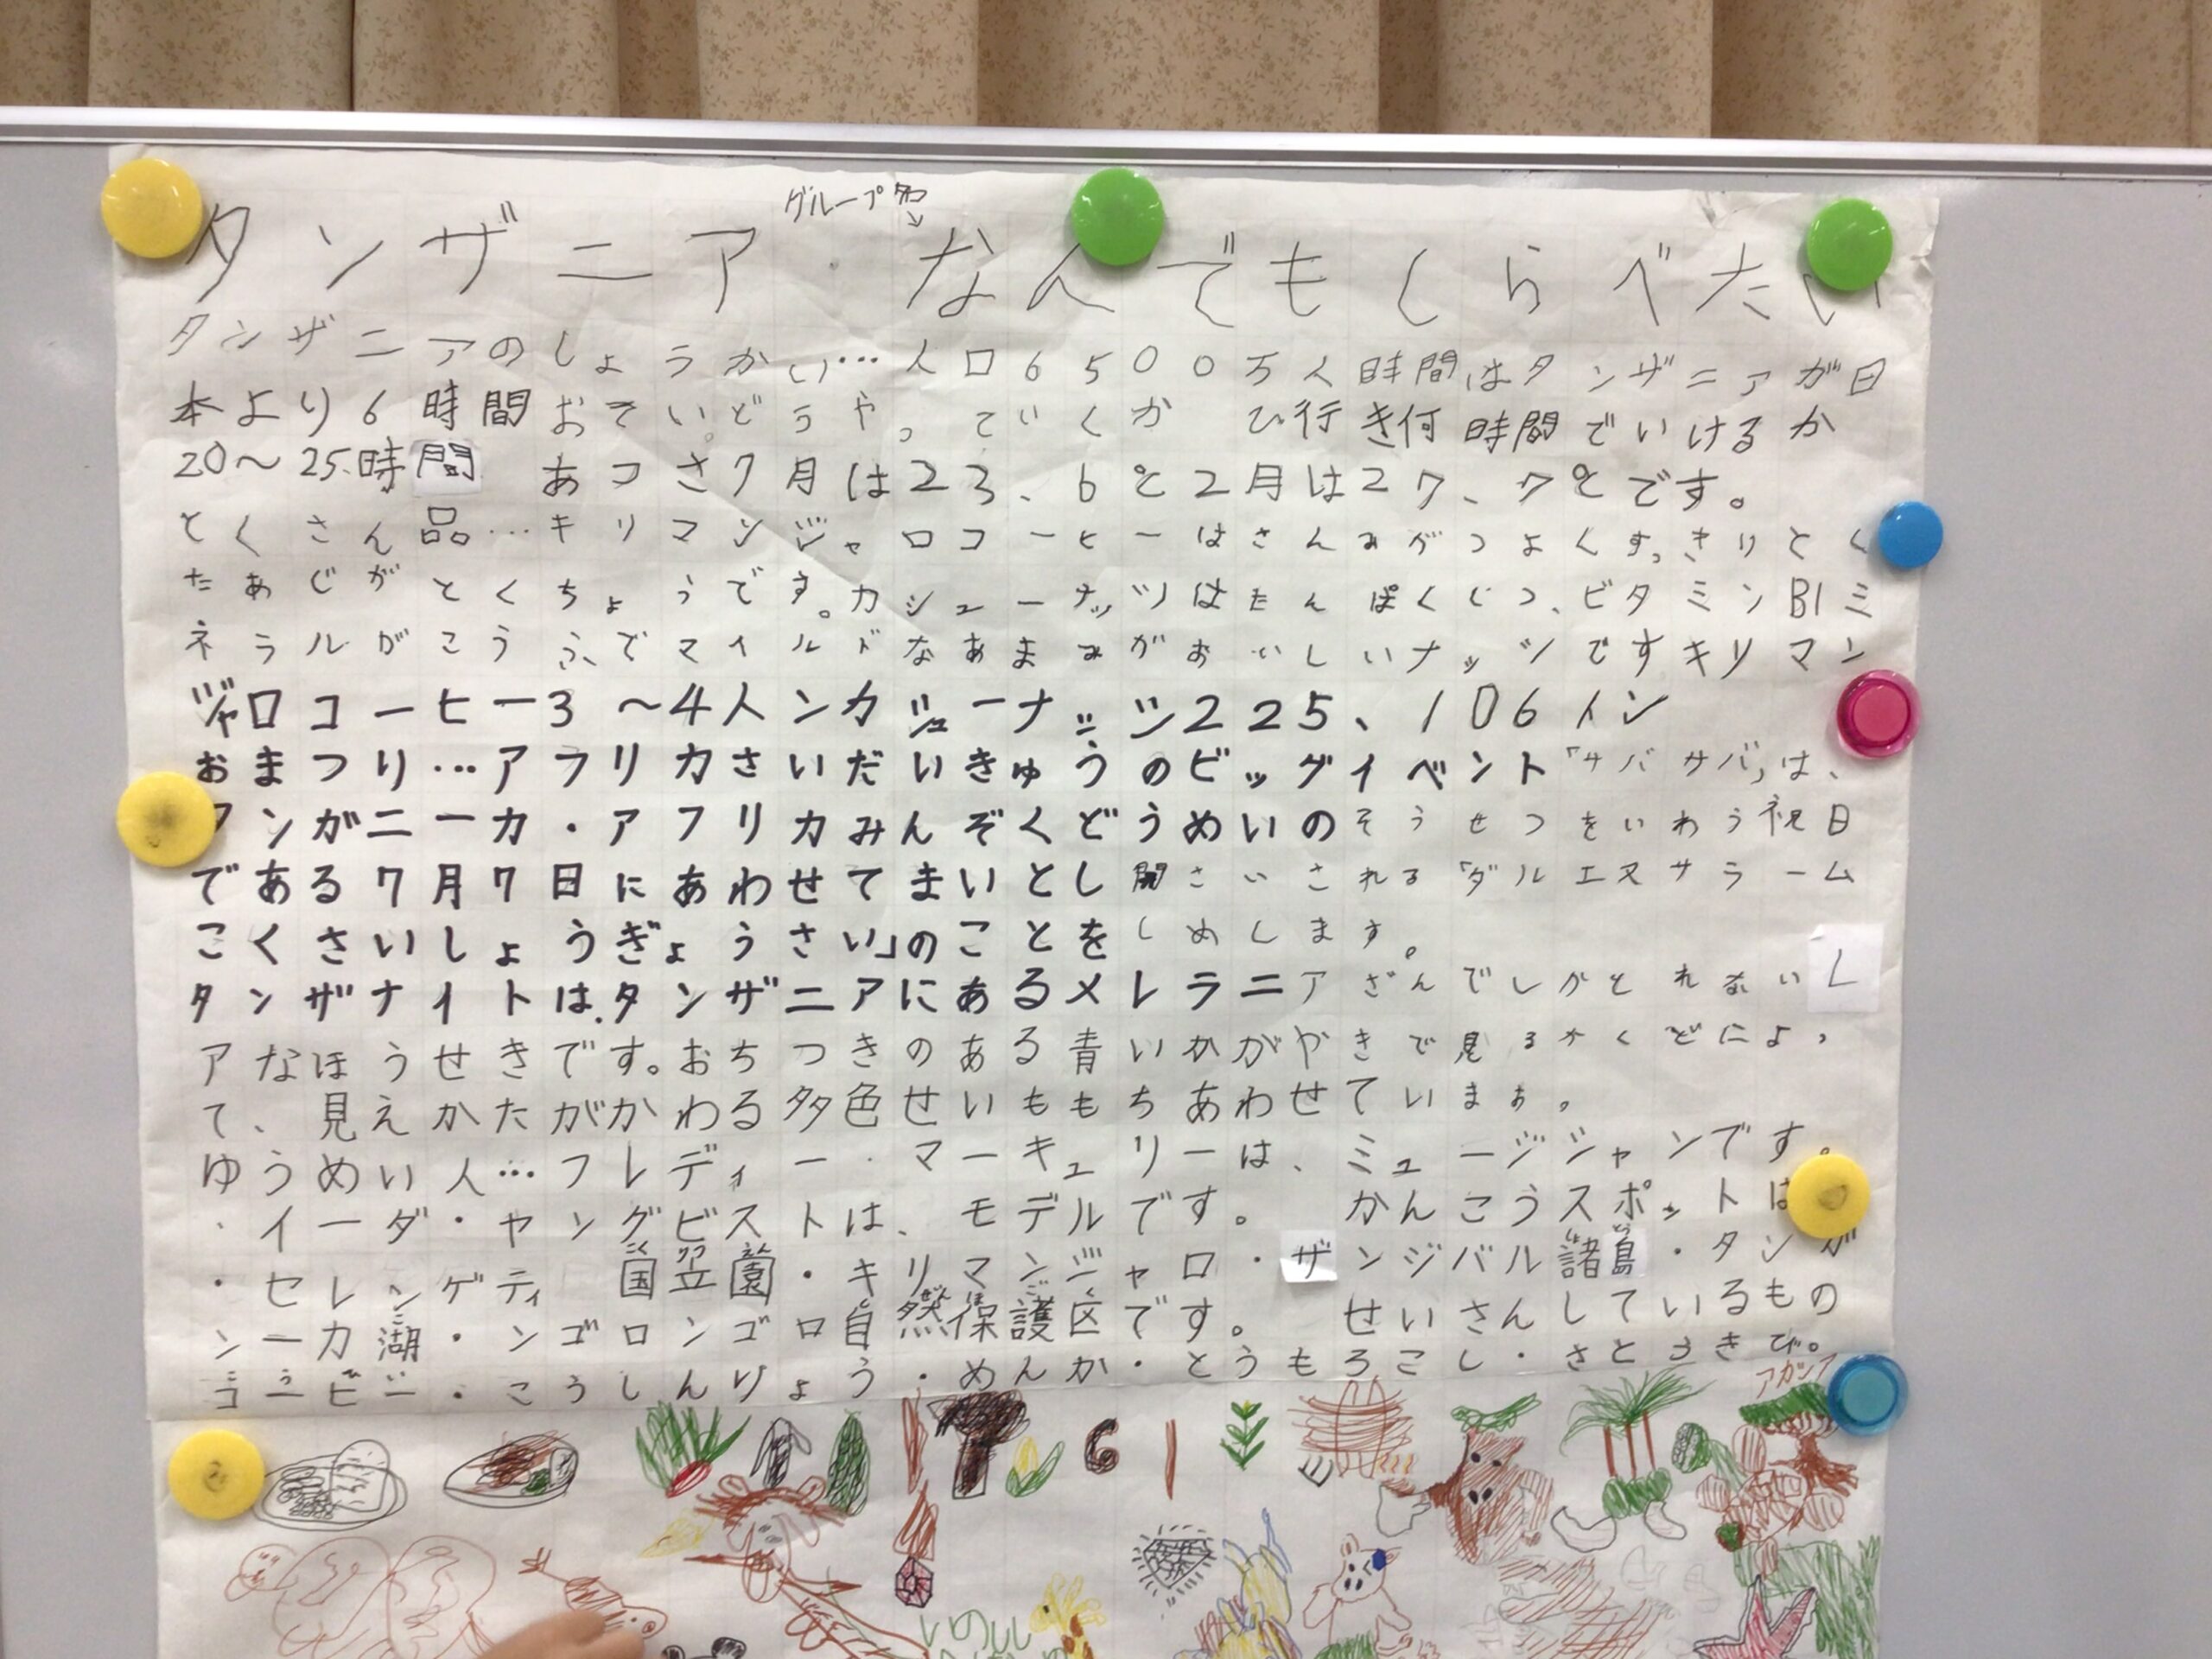 グループ名
↓
タンザニア・なんでもしらべたい
タンザニアのしょうかい…人口6500万人時間はタンザニアが日
本より6時間おそい。どうやっていくか ひ行き何時間でいけるか
20〜25時間 あつさ7月は23、6℃2月は27、7℃です。
とくさん品…キリマンジャロコーヒーはさんみがつよくすっきりとし
たあじがとくちょうです。カシューナッツはたんぱくしつ、ビタミンB1ミ
ネラルがこうふでマイルドなあまみがおいしいナッツですキリマン
ジャロコーヒー3〜4人ンカシューナッツ225、106イン
おまつり…アフリカさいだいきゅうのビッグイベント「サバサバ」は、
タンガニーカ・アフリカみんぞくどうめいのそうせつをいわう祝日
である7月7日にあわせてまいとし開さいされる「ダルエスサラーム
こくさいしょうぎょうさい」のことをしめします。
タンザナイトは、タンザニアにあるメレラニアざんでしかとれないレ
アなほうせきです。おちつきのある青いかがやきで見るかくどによっ
て、見えかたがかわる多色せいももちあわせていまぉ。
ゆうめい人…フレディー・マーキュリーは、ミュージシャンです。
・イーダ・ヤングビストは、モデルです。 かんこうスポットは
・セレンゲティ 国立園・キリマンジャロ・ザンジバル諸島・タンガ
ンーカ湖・ンゴロンゴロ自然保護区です。 せいさんしているもの
コーヒー・こうしんりょう・めんか・とうもろこし・さとうきび。
アカシア
いのしし